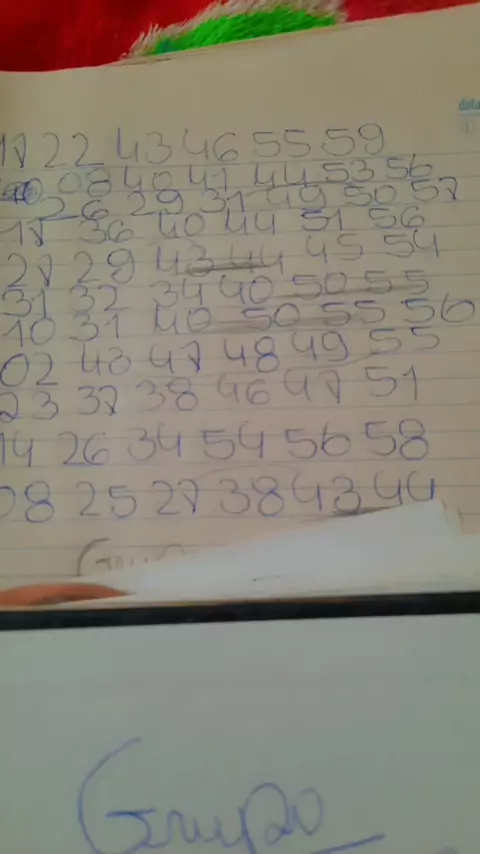 17 22 43 46 55 59
08 40 41 44 53 56
26 29 31 49 50 57
17 36 40 44 51 56
27 29 43 44 45 54
31 32 34 40 50 55
10 31 40 50 55 56
02 43 47 48 49 55
23 37 38 46 47 51
14 26 34 54 56 58
08 25 27 38 43 44
Grupo